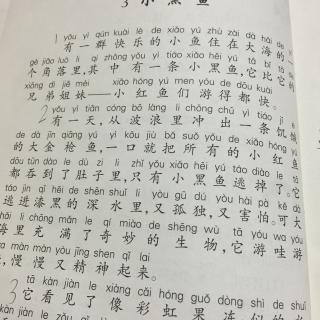 3 小 黑 鱼
1 yǒu yì qún kuài lè de xiǎo yú zhù zài dà hǎi de
有一群快乐的小鱼住在大海的一
gè jiǎo luò li qí zhōng yǒu yì tiáo xiǎo hēi yú tā bǐ tā
个角落里,其中有一条小黑鱼,它比它的
xiōng dì jiě mèi xiǎo hóng yú men yóu de dōu kuài
兄弟姐妹——小红鱼们游得都快。
2 yǒu yì tiān cóng bō làng li chōng chū yì tiáo jī
有一天,从波浪里冲出一条饥饿
de dà jīn qiāng yú yì kǒu jiù bǎ suǒ yǒu de xiǎo hóng yú
的大金枪鱼,一口就把所有的小红鱼
dōu tūn dào le dù zi li zhǐ yǒu xiǎo hēi yú táo diào le tā
都吞到了肚子里,只有小黑鱼逃掉了。它
táo jìn qī hēi de shēn shuǐ li yòu gū dú yòu hài pà kě dà
逃进漆黑的深水里,又孤独,又害怕。可大
hǎi li chōng mǎn le qí miào de shēng wù tā yóu wa yóu
海里充满了奇妙的生物,它游哇游
wa màn màn yòu jīng shen qǐ lai
哇,慢慢又精神起来。
3 tā kàn jiàn le xiàng cǎi hóng guǒ dòng shì de shuǐ
它看见了像彩虹果冻似的水
kàn jiàn le zǒu qǐ